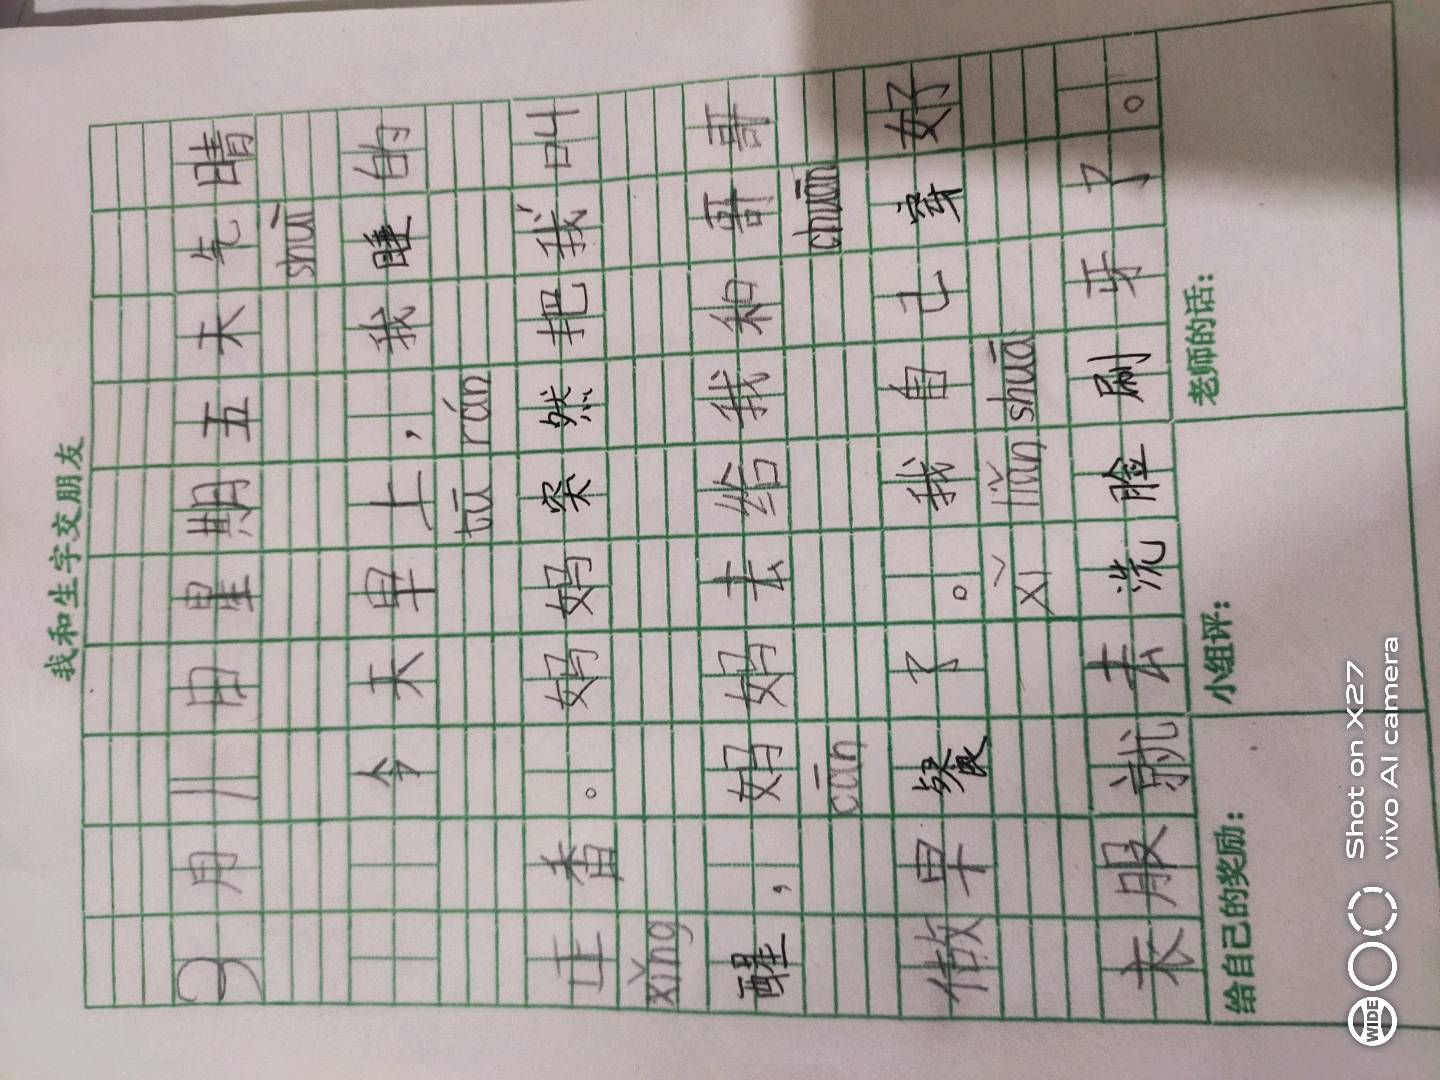 我和生字交朋友
3月11日星期五天气晴
shū
今天早上,我睡的
tū rán
正香。妈妈突然把我叫
xǐng
醒,妈妈去给我和哥哥
cān chuān
做早餐了。我自己穿好
xǐ liǎn shuā
衣服就去洗脸刷牙了。
给自己的奖励: 小组评: 老师的话:
WIDE
Shot on X27
vivo AI camera